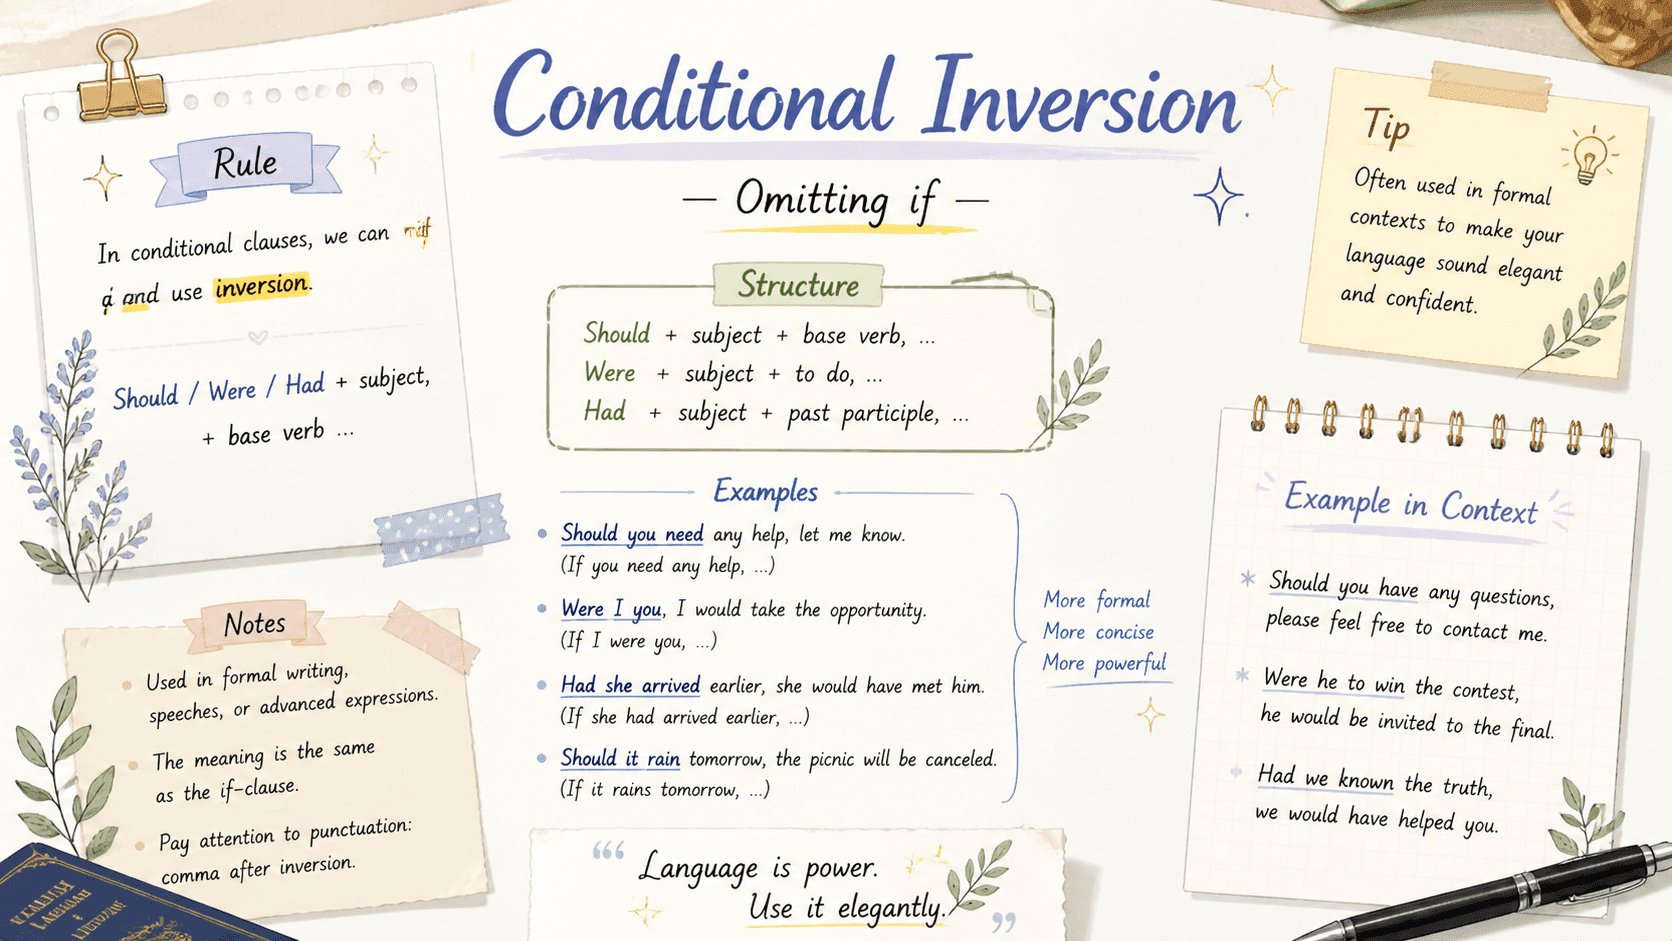 Conditional Inversion
— Omitting if —
Rule
In conditional clauses, we can
and use inversion.
Should / Were / Had + subject,
+ base verb ...
Structure
Should + subject + base verb, ...
Were + subject + to do, ...
Had + subject + past participle, ...
Examples
Should you need any help, let me know.
(If you need any help, ...)
Were I you, I would take the opportunity.
(If I were you, ...)
Had she arrived earlier, she would have met him.
(If she had arrived earlier, ...)
Should it rain tomorrow, the picnic will be canceled.
(If it rains tomorrow, ...)
More formal
More concise
More powerful
Tip
Often used in formal
contexts to make your
language sound elegant
and confident.
Example in Context
Should you have any questions,
please feel free to contact me.
Were he to win the contest,
he would be invited to the final.
Had we known the truth,
we would have helped you.
Notes
Used in formal writing,
speeches, or advanced expressions.
The meaning is the same
as the if-clause.
Pay attention to punctuation:
comma after inversion.
“Language is power.
Use it elegantly.”